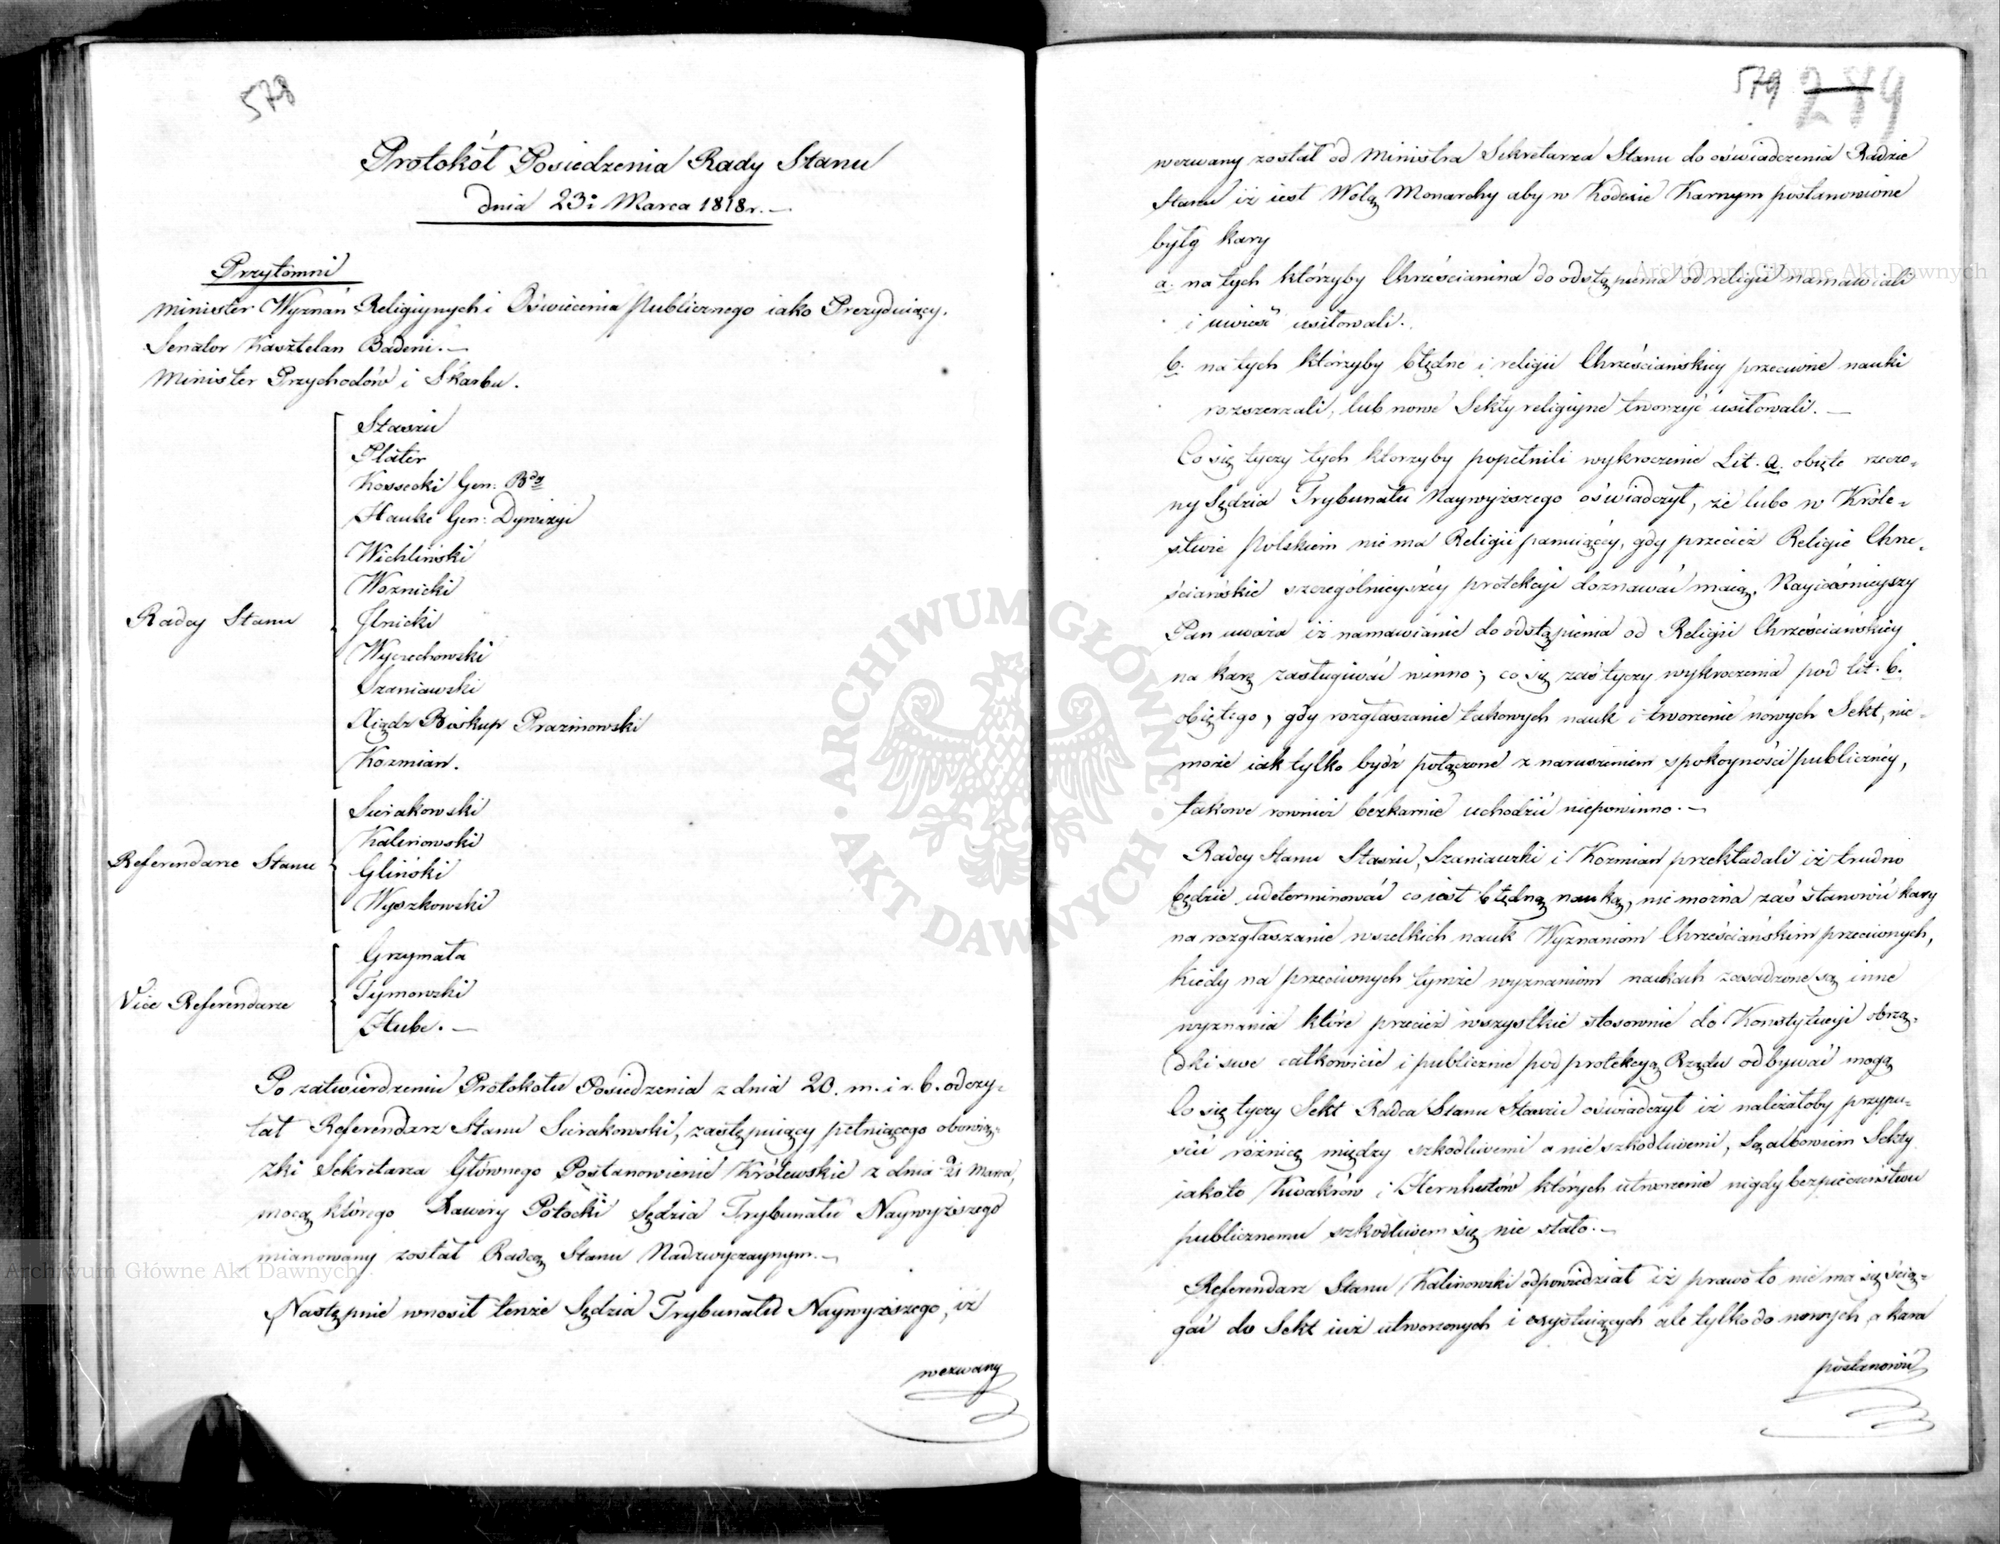 578
Protokół Posiedzenia Rady Stanu
dnia 23. Marca 1818 r.
Przytomni
Minister Wyznań Religijnych i Oświecenia publicznego iako Prezyduiący.
Senator Kasztelan Badeni.
Minister Przychodów i Skarbu.
Radcy Stanu
Staszic
Plater
Kossecki Gen: Bdy
Hauke Gen: Dywizyi
Wichliński
Woznicki
Jlnicki
Wyczechowski
Szaniawski
Xiądz Biskup Prazmowski
Kozmian.
Referendarze Stanu
Sierakowski
Kalinowski
Gliński
Wyszkowski
Vice Referendarze
Grzymała
Tymowski
Hube.
Po zatwierdzeniu Protokołu Posiedzenia z dnia 20. m. i r. b. odczy-
tał Referendarz Stanu Sierakowski, zastępuiący pełniącego obowią-
zki Sekretarza Głównego Postanowienie Królewskie z dnia 21 Marca,
mocą którego Xawery Potocki Sędzia Trybunału Naywyższego
mianowany został Radcą Stanu Nadzwyczaynym.
Następnie wnosił tenże Sędzia Trybunału Naywyższego, iż
wezwany
579 289
wezwany został od Ministra Sekretarza Stanu do oświadczenia Radzie
Stanu iż iest Wolą Monarchy aby w Kodexie Karnym postanowione
były kary
a. na tych którzyby Chrześcianina do odstąpienia od religii namawiali
i uwieść usiłowali.
b. na tych którzyby błędne i religii Chrześciańskiey przeciwne nauki
rozszerzali, lub nowe Sekty religiyne tworzyć usiłowali.
Co się tyczy tych ktorzyby popełnili wykroczenie Lit. a. obięte rzeczo-
ny Sędzia Trybunału Naywyższego oświadczył, że lubo w Króle-
stwie Polskiem nie ma Religii panuiącey, gdy przecież Religie Chrze-
ściańskie szczególnieyszéy protekcyi doznawać maią, Nayiaśnieyszy
Pan uważa iż namawianie do odstąpienia od Religii Chrześciańskiey
na karę zasługiwać winno; co się zaś tyczy wykroczenia pod lit. b.
obiętego, gdy rozgłaszanie takowych nauk i tworzenie nowych Sekt, nie-
może iak tylko bydź połączone z naruszeniem spokoyności publicznéy,
takowe rownież bezkarnie uchodzić niepowinno.
Radcy Stanu Staszic, Szaniawski i Kozmian przekładali iż trudno
będzie udeterminować co iest błędną nauką, nie można zaś stanowić kary
na rozgłaszanie wszelkich nauk Wyznaniom Chrześciańskim przeciwnych,
kiedy na przeciwnych tymże wyznaniom naukach zasadzone są inne
wyznania które przecież wszystkie stosownie do Konstytucyi obrzą-
dki swe całkowicie i publicznie pod protekcyą Rządu odbywać mogą
Co się tyczy Sekt Radca Stanu Staszic oświadczył iż należałoby przypu-
ścić różnicę między szkodliwemi a nieszkodliwemi, Są albowiem Sekty
iako to Kwakrów i Hernhutów których utworzenie nigdy bezpieczeństwu
publicznemu szkodliwem się nie stało.
Referendarz Stanu Kalinowski odpowiedział iż prawo to nie ma się ścią-
gać do Sekt iuż utworzonych i exystuiących ale tylko do nowych, a kara
postanowić
ARCHIWUM GŁÓWNE AKT DAWNYCH
Archiwum Główne Akt Dawnych
Archiwum Główne Akt Dawnych